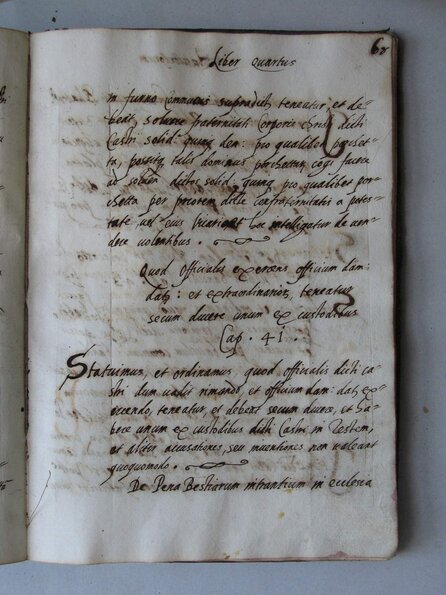 68
Liber Quartus
in furno comunis supradicti teneatur, et de-
beat solvere fraternitati Corporis Christi dicti
Castri solid: quinq den: pro qualibet porcset-
ta, possitq talis dominus porchettar cogi facere
ad solven dictos solid: quinq pro qualibet por-
chetta per priorem dicte confraternitatis a potes-
tate, vel eius Vicario et hoc intelligatur de ven-
dere volentibus.
Quod Officialis exercens officium dam:
dat: et extraordinarior, teneatur
secum ducere unum ex custodibus
Cap. 41.
Statuimus, et ordinamus, quod officialis dicti ca-
stri dum vadit rimando, et officium dam: dat, ex-
ercendo, teneatur, et debeat secum ducere, et ha-
bere unum ex custodibus dicti Castri in Testem,
et aliter accusationes, seu inventiones non valeant
quoquomodo.
De Pena Bestiarum intrantium in ecclesia